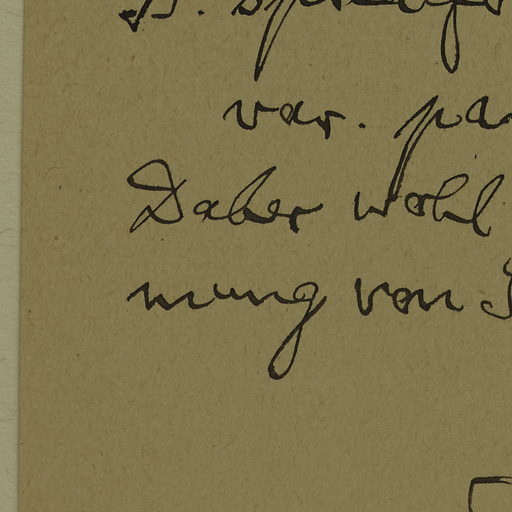 var. pa
Daher wohl
mung von